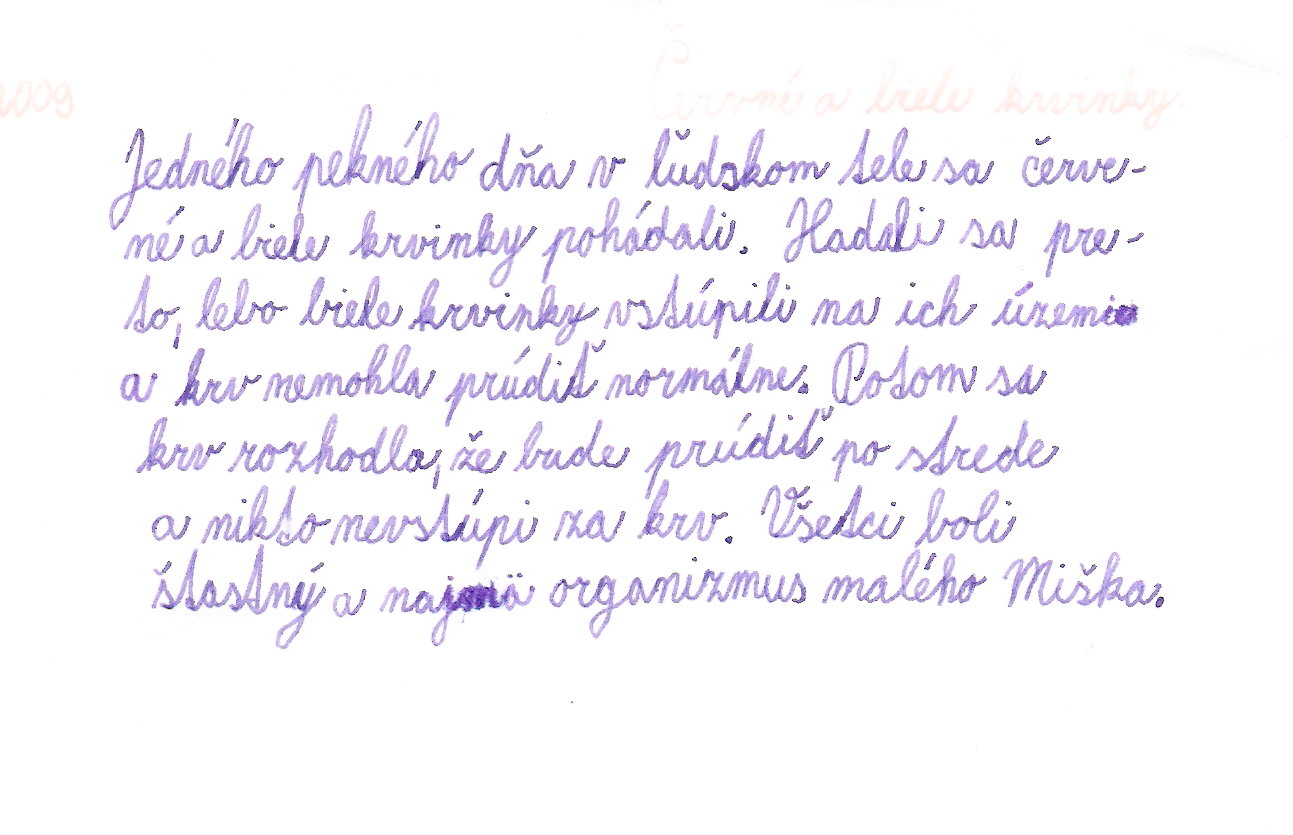 2009 Červné a biele krvinky.
Jedného pekného dňa v ľudskom tele sa červe-
né a biele krvinky pohádali. Hadali sa pre-
to, lebo biele krvinky vstúpili na ich územie
a krv nemohla prúdiť normálne. Potom sa
krv rozhodla, že bude prúdiť po strede
a nikto nevstúpi za krv. Všetci boli
štastný a najmä organizmus malého Miška.